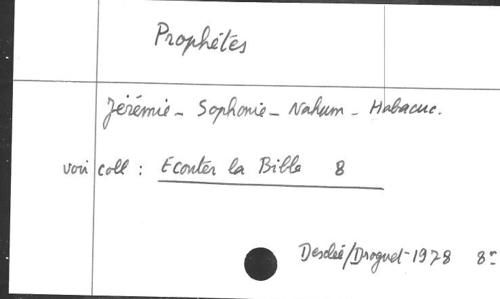 Prophétés
Jérémie - Sophonie - Nahum - Habacuc.
voir coll : Ecouter la Bible 8
Desclée/Droguet - 1978 8°